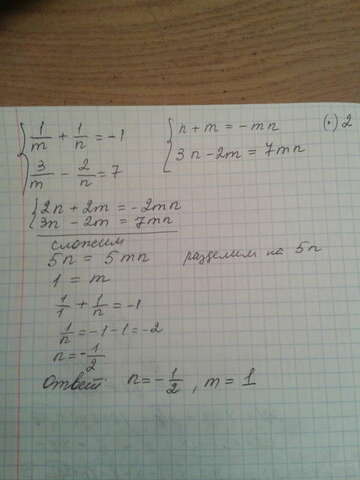 1/m + 1/n = -1
3/m - 2/n = 7
n + m = -mn (·) 2
3n - 2m = 7mn
2n + 2m = -2mn
3n - 2m = 7mn
сложим
5n = 5mn разделим на 5n
1 = m
1/1 + 1/n = -1
1/n = -1 - 1 = -2
n = -1/2
Ответ n = -1/2, m = 1